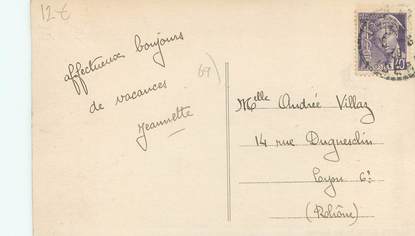 12€
affectueux bonjours
de vacances
Jeannette
69)
Mlle Andrée Villaz
14 rue Duguesclin
Lyon 6e
(Rhône)
40